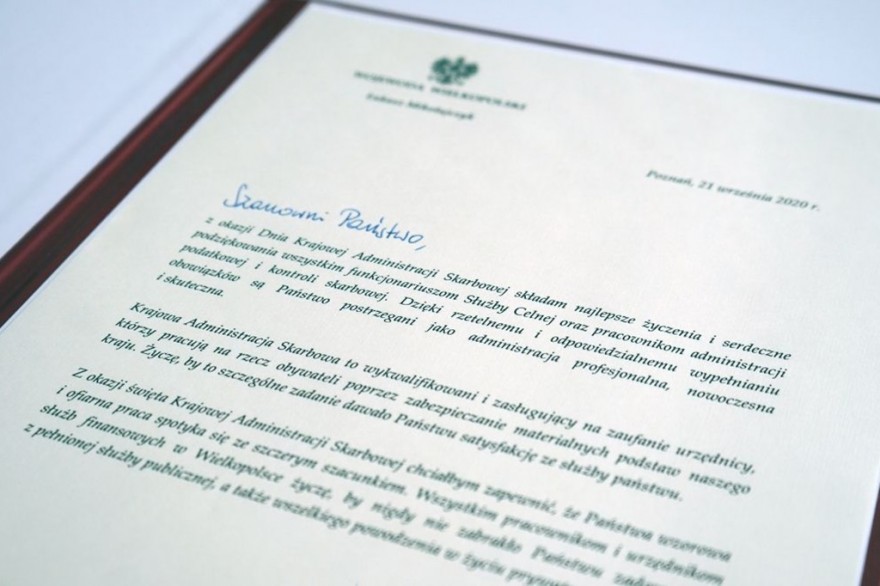 WOJEWODA WIELKOPOLSKI
Łukasz Mikołajczyk
Poznań, 21 września 2020 r.
Szanowni Państwo,
z okazji Dnia Krajowej Administracji Skarbowej składam najlepsze życzenia i serdeczne
podziękowania wszystkim funkcjonariuszom Służby Celnej oraz pracownikom administracji
podatkowej i kontroli skarbowej. Dzięki rzetelnemu i odpowiedzialnemu wypełnianiu
obowiązków są Państwo postrzegani jako administracja profesjonalna, nowoczesna
i skuteczna.
Krajowa Administracja Skarbowa to wykwalifikowani i zasługujący na zaufanie urzędnicy,
którzy pracują na rzecz obywateli poprzez zabezpieczanie materialnych podstaw naszego
kraju. Życzę, by to szczególne zadanie dawało Państwu satysfakcję ze służby państwu.
Z okazji święta Krajowej Administracji Skarbowej chciałbym zapewnić, że Państwa wzorowa
i ofiarna praca spotyka się ze szczerym szacunkiem. Wszystkim pracownikom i urzędnikom
służb finansowych w Wielkopolsce życzę, by nigdy nie zabrakło Państwu
z pełnionej służby publicznej, a także wszelkiego powodzenia w życiu